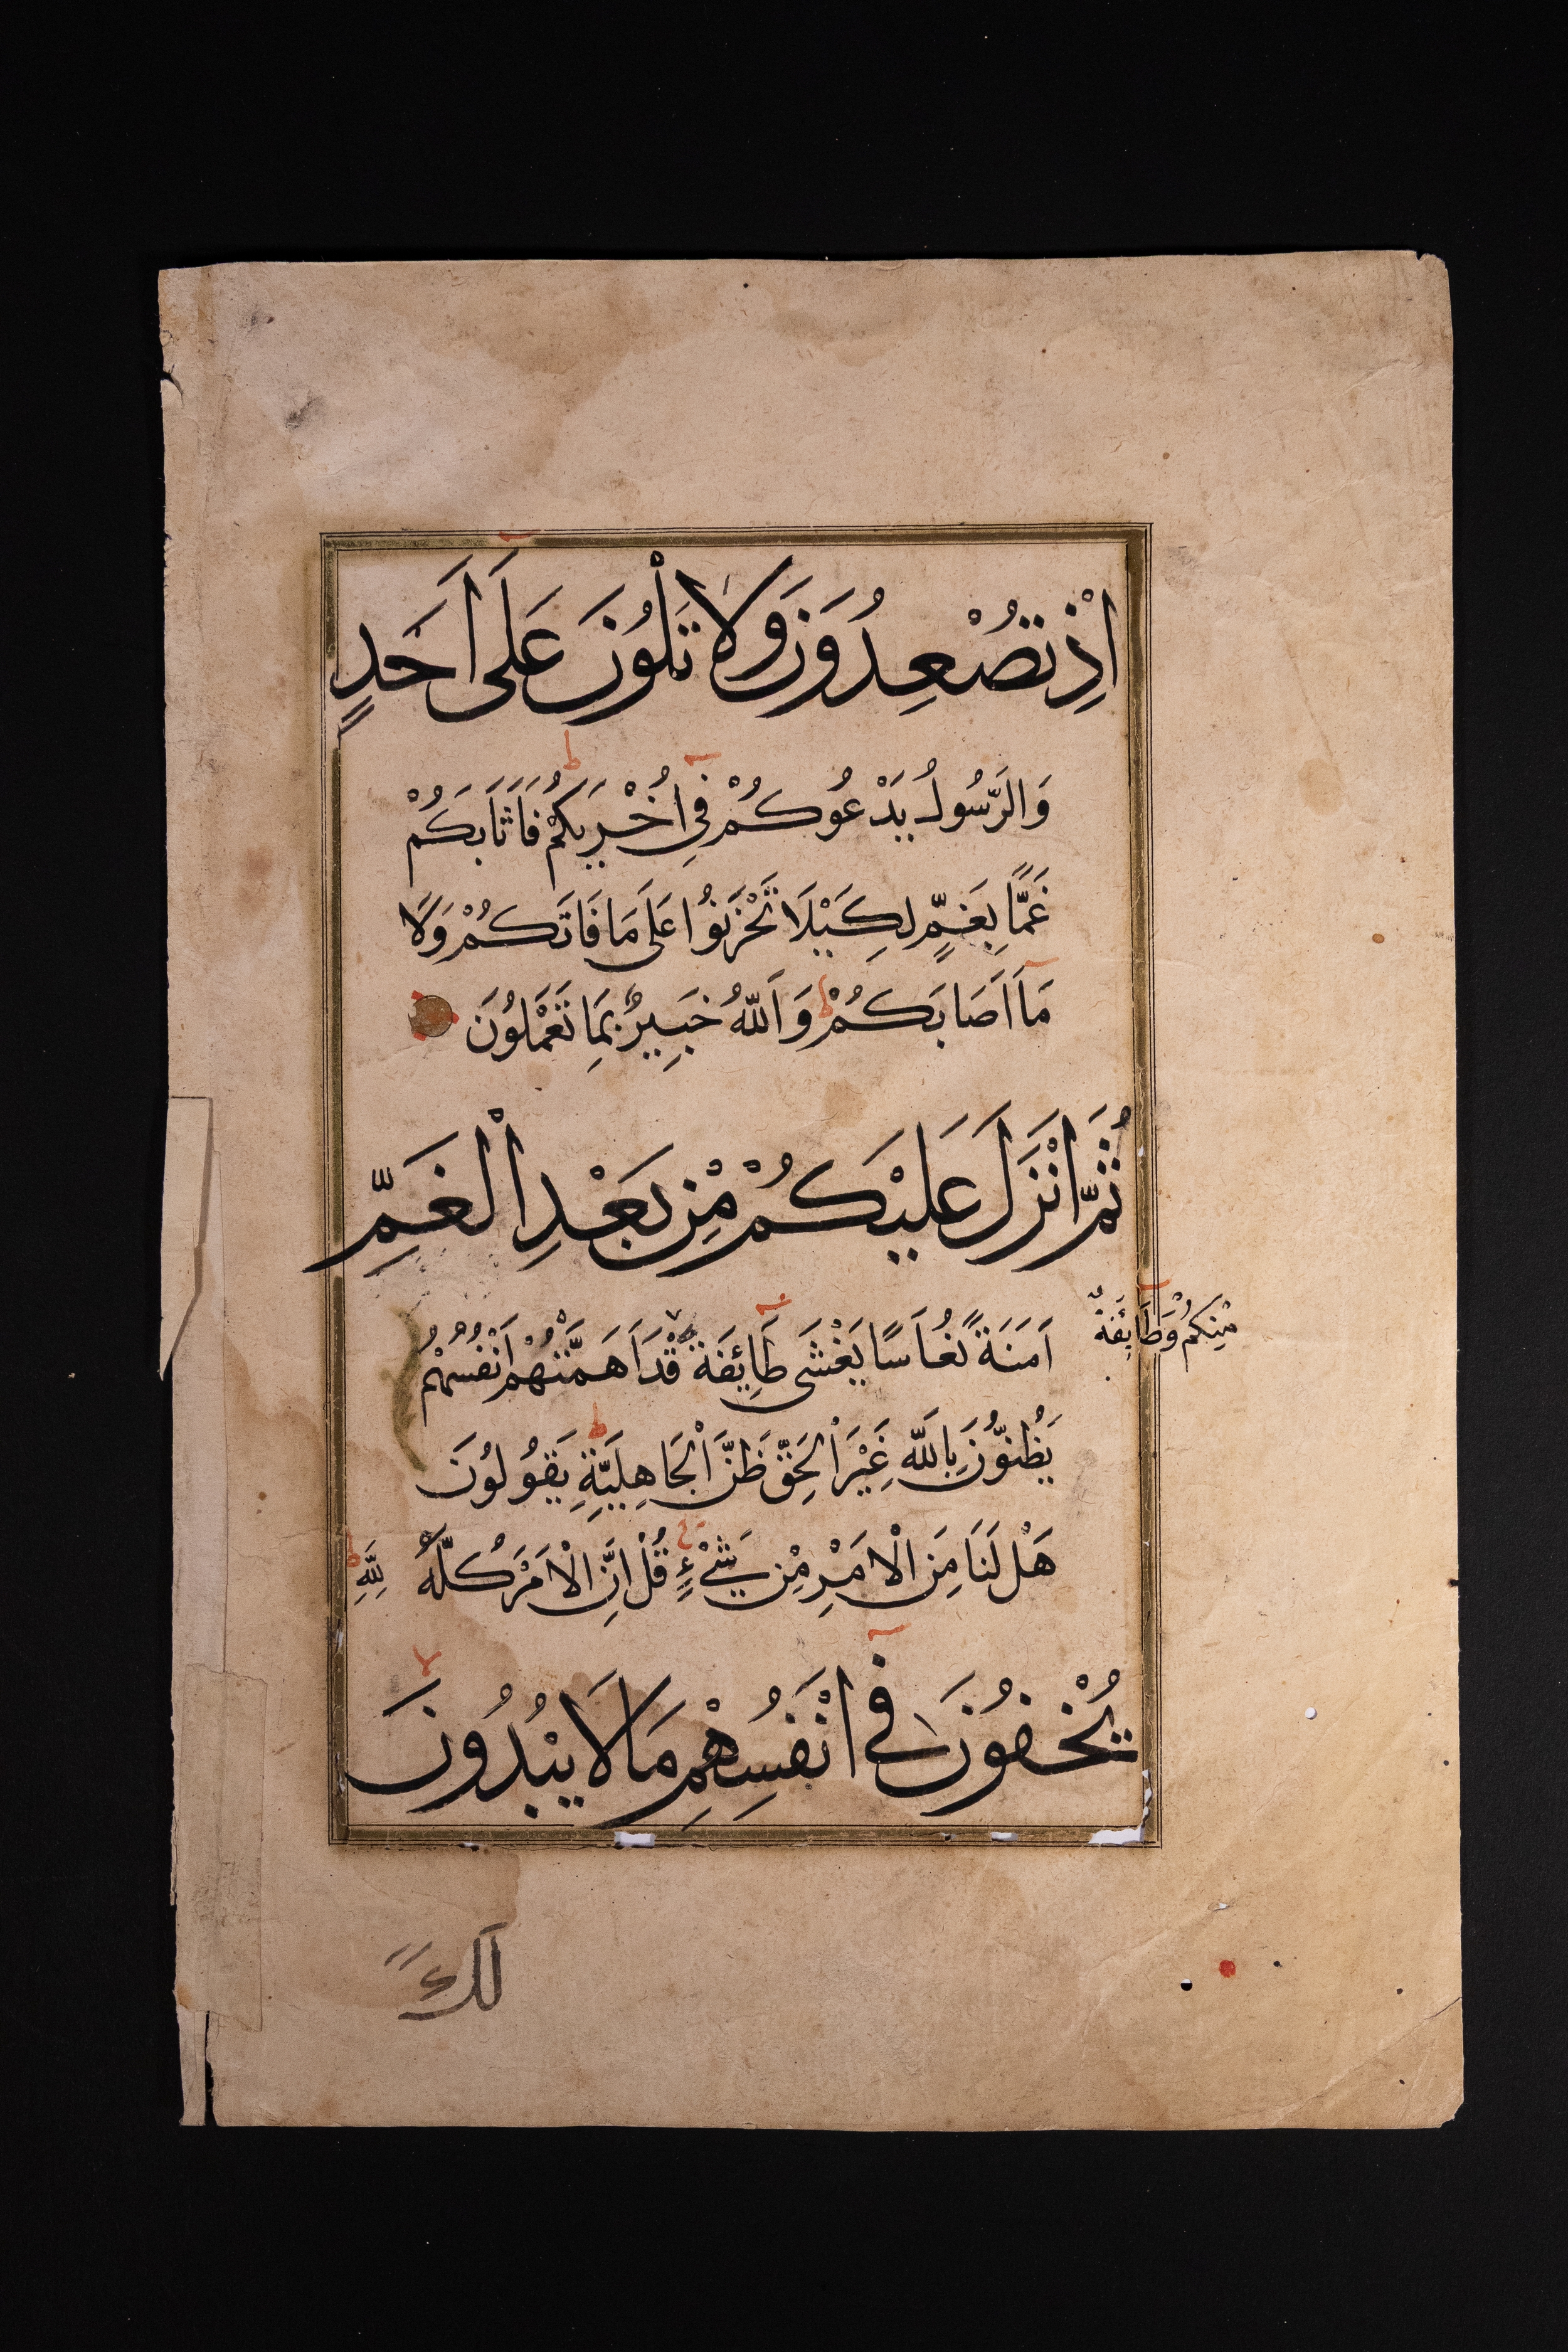 اِذْ تُصْعِدُوْنَ وَلَا تَلْوُنَ عَلَى اَحَدٍ
وَالرَّسُولُ يَدْعُوكُمْ فِي اُخْرٰيكُمْ فَاَثَابَكُمْ
غَمًّا بِغَمٍّ لِكَيْلَا تَحْزَنُوا عَلَى مَا فَاتَكُمْ وَلَا
مَا اَصَابَكُمْ وَاللّٰهُ خَبِيرٌ بِمَا تَعْمَلُونَ
ثُمَّ اَنْزَلَ عَلَيْكُمْ مِنْ بَعْدِ الْغَمِّ
اَمَنَةً نُعَاسًا يَغْشَى طَائِفَةً قَدْ اَهَمَّتْهُمْ اَنْفُسُهُمْ
مِنْكُمْ وَطَائِفَةٌ
يَظُنُّونَ بِاللّٰهِ غَيْرَ الْحَقِّ ظَنَّ الْجَاهِلِيَّةِ يَقُولُونَ
هَلْ لَنَا مِنَ الْاَمْرِ مِنْ شَيْءٍ قُلْ اِنَّ الْاَمْرَ كُلَّهُ لِلّٰهِ
يُخْفُونَ فِي اَنْفُسِهِمْ مَا لَا يُبْدُونَ
لَكَ